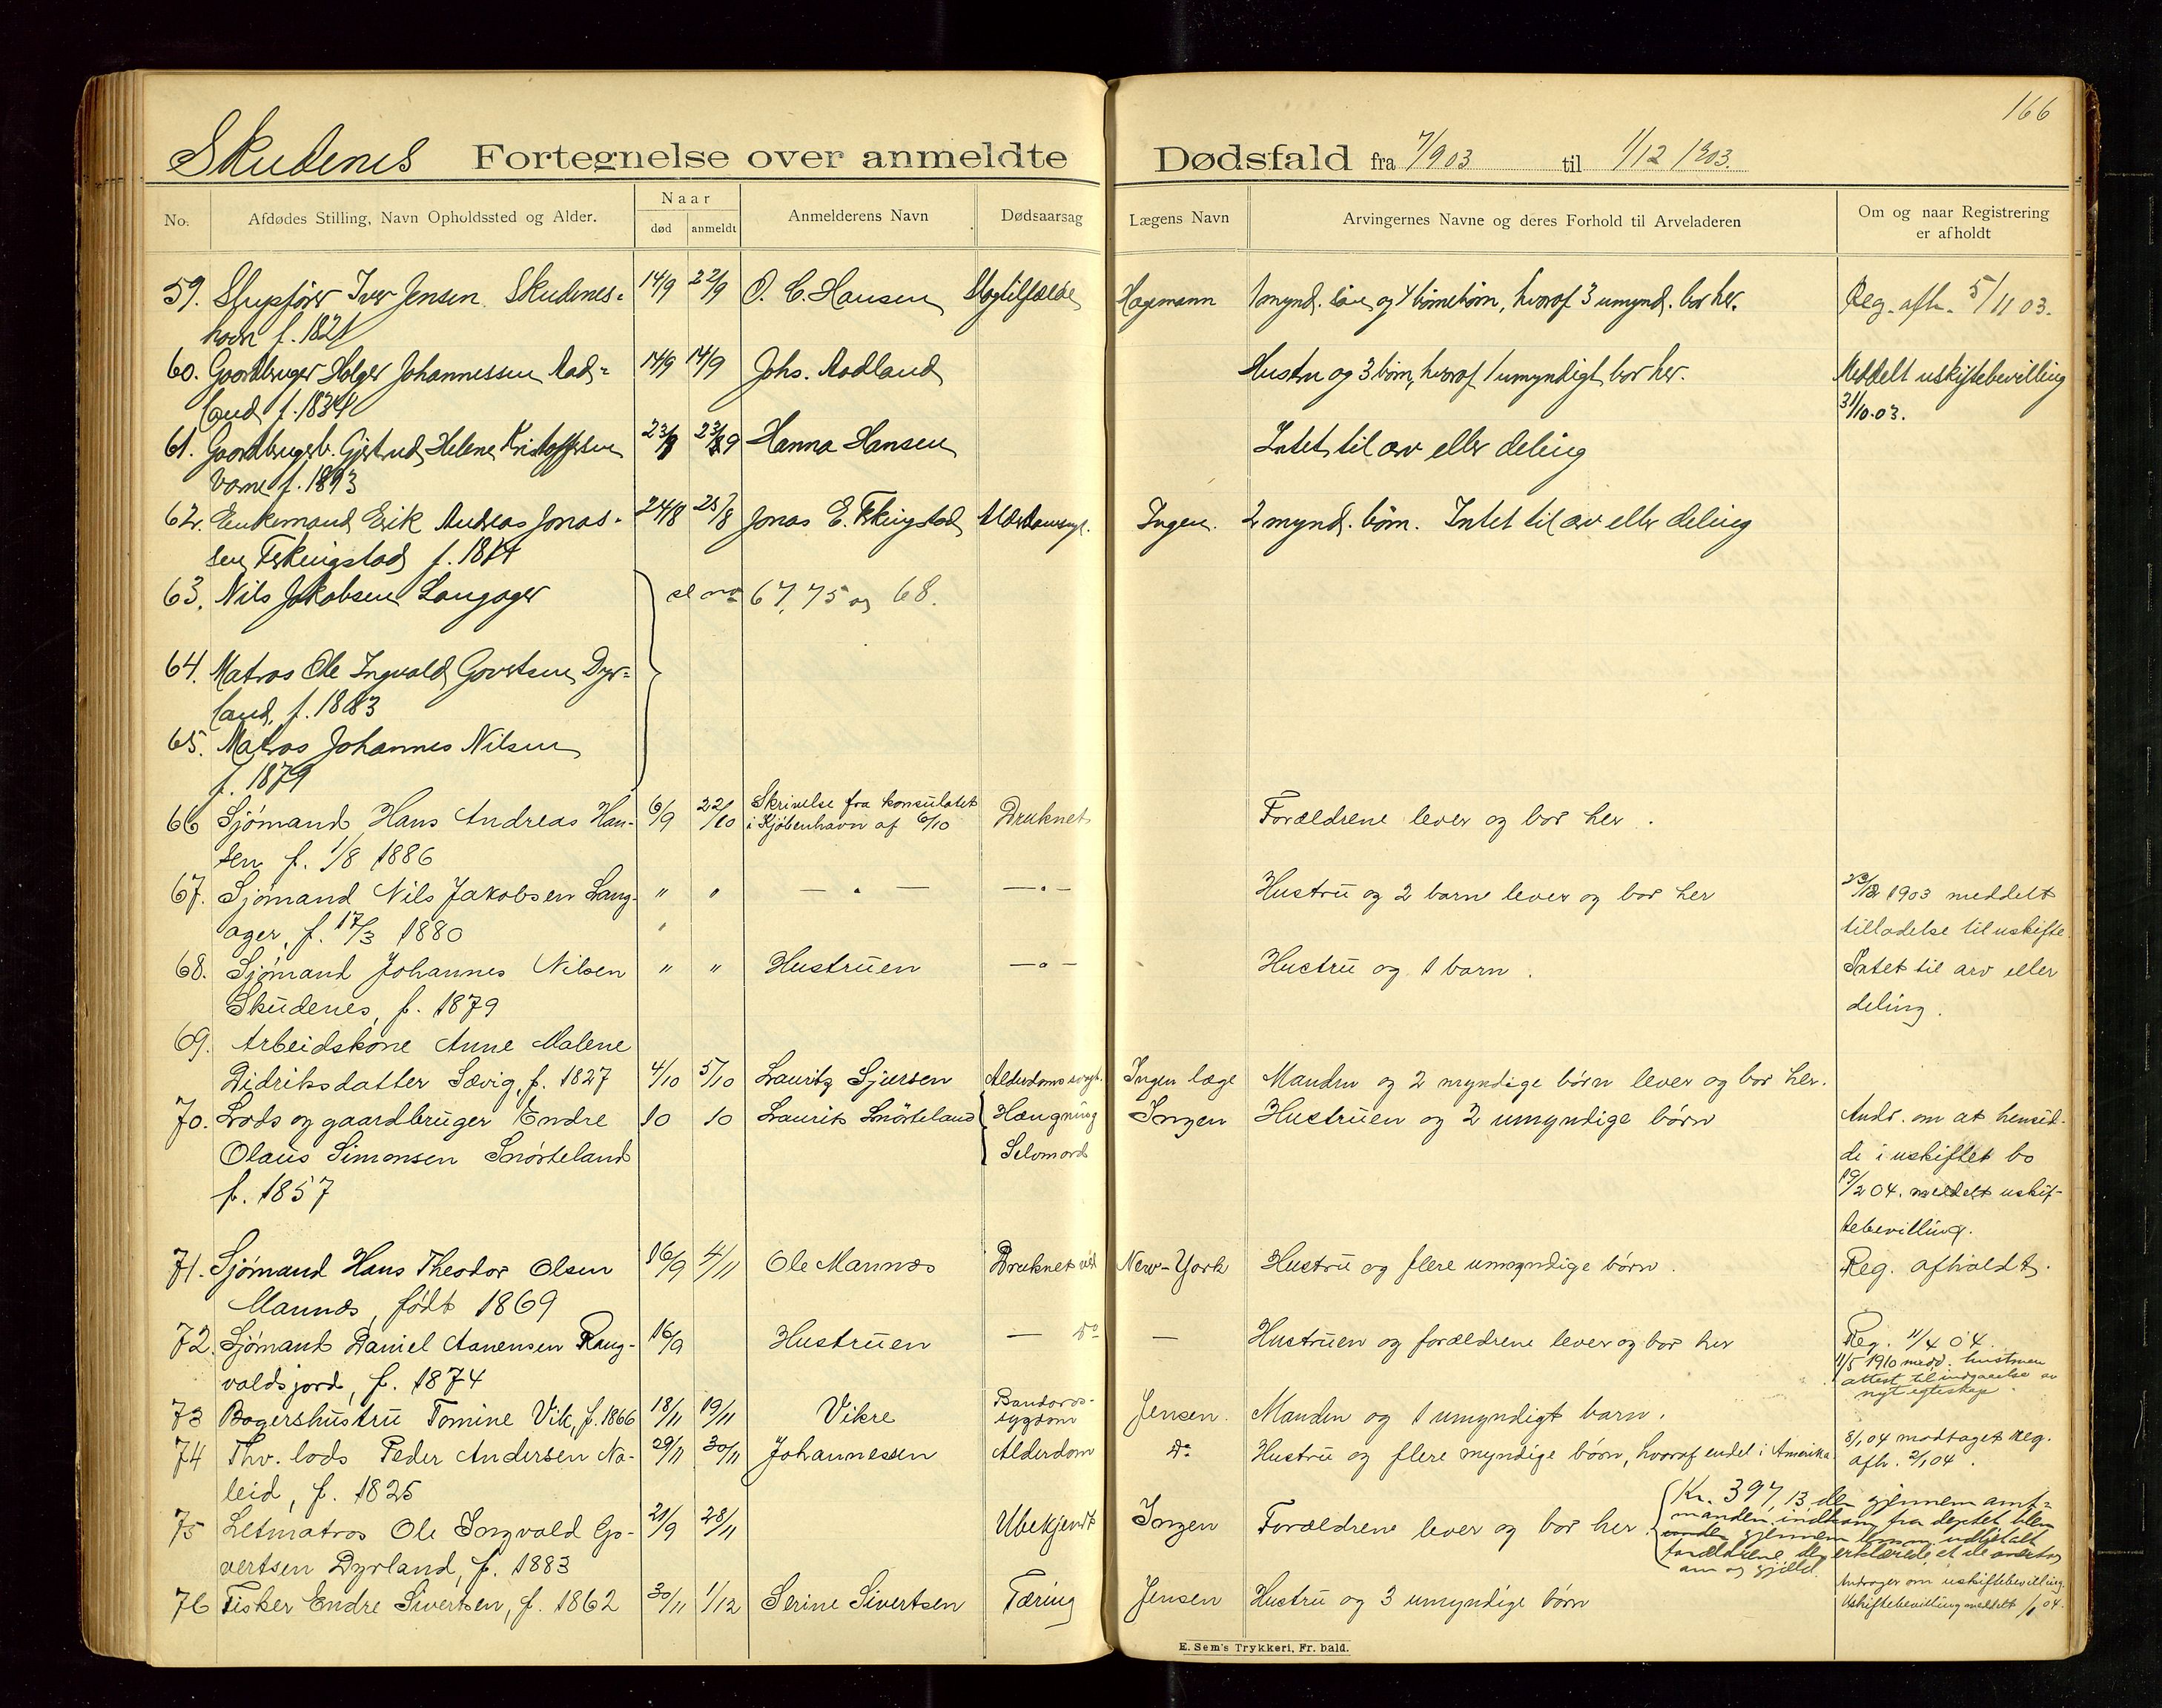 166
Skudenes Fortegnelse over anmeldte Dødsfald fra 7/9 03 til 1/12 1903.
No. Afdødes Stilling, Navn Opholdssted og Alder. Naar død anmeldt Anmelderens Navn Dødsaarsag Lægens Navn Arvingernes Navne og deres Forhold til Arveladeren Om og naar Registrering er afholdt
59. Skipsfører Iver Jensen Skudenes- 14/9 22/9 O. C. Hansen Slagtilfælde Hagemann 1 mynd. søn og 4 børnebørn, hvoraf 3 umynd. bor her. Reg. afh. 5/11 03.
havn f. 1821
60. Gaardbruger Holger Johannessen Aad- 14/9 14/9 Johs. Aadland Hustru og 3 børn, hvoraf 1 umyndigt bor her. Meddelt uskiftebevilling
land f. 1834 31/10.03.
61. Gaardbrugerb. Gjertrud Helene Kristoffersen 23/9 23/9 Hanna Hansen Intet til arv eller deling
f. 1893
62. Enkemand Erik Andreas Jonas- 24/8 25/8 Jonas E. Ferkingstad Alderdomsygd. Ingen. 2 mynd. børn. Intet til arv eller deling
sen Ferkingstad f. 1814
63. Nils Jakobsen Langager se no 67, 75 og 68.
64. Matros Ole Ingvald Govertsen Dyr-
land, f. 1883
65. Matros Johannes Nilsen
f. 1879
66 Sjømand Hans Andreas Han- 6/9 22/10 Skrivelse fra konsulatet Druknet Forældrene lever og bor her.
i Kjøbenhavn af 6/10
sen f. 1/8 1886
67. Sjømand Nils Jakobsen Lang- " " — " — — " — Hustru og 2 barne lever og bor her 23/12 1903 meddelt
ager, f. 17/3 1880 tilladelse til uskifte
68. Sjømand Johannes Nilsen " " Hustruen — " — Hustru og 1 barn. Intet til arv eller
Skudenes, f. 1879 deling.
69. Arbeidskone Anne Malene
Didriksdatter Sævig, f. 1827 4/10 5/10 Lauritz Sjursen Alderdomssvagh. Ingen læge Manden og 2 myndige børn lever og bor her.
70. Lods og gaardbruger Endre 10 10 Laurits Snørteland Hængning Ingen Hustruen og 2 umyndige børn Andr. om at hensid-
Olaus Simonsen Snørteland Selvmord de i uskiftet bo
f. 1857 19/2 04. meddelt uskif-
tebevilling.
71. Sjømand Hans Theodor Olsen 16/9 4/11 Ole Mannes Druknet ved New-York Hustru og flere umyndige børn. Reg. afholdt.
Mannes, født 1869
72. Sjømand Daniel Aanensen Rang- 16/9 Hustruen — do — Hustruen og forældrene lever og bor her Reg. 11/4 04.
valdsjord, f. 1874 11/5 1910 medd. hustruen
attest til indgaaelse av
nyt egteskap.
73 Bagershustru Tomine Vik, f. 1866 18/11 19/11 Vikre Jensen. Manden og 1 umyndigt barn.
74 Fhv. lods Peder Andersen Na- 29/11 30/11 Johannessen Alderdom do Hustru og flere myndige børn, hvoraf endel i Amerika 8/1 04 modtaget reg.
leid, f. 1825 afh. 2/1 04.
75 Letmatros Ole Ingvald Go- 21/9 28/11 Ubekjendt Ingen Forældrene lever og bor her. Kr. 397,13 der gjennem amt-
manden indkom fra deptet blev
gjennem udbetalt
forældrene der erklærede at de overtog
arv og gjæld.
vertsen Dyrland, f. 1883
76 Fisker Endre Sivertsen, f. 1862 30/11 1/12 Serine Sivertsen Tæring Jensen Hustru og 3 umyndige børn Andrager om uskiftebevilling.
Uskiftebevilling meddelt 04.
E. Sem's Trykkeri, Fr. hald.